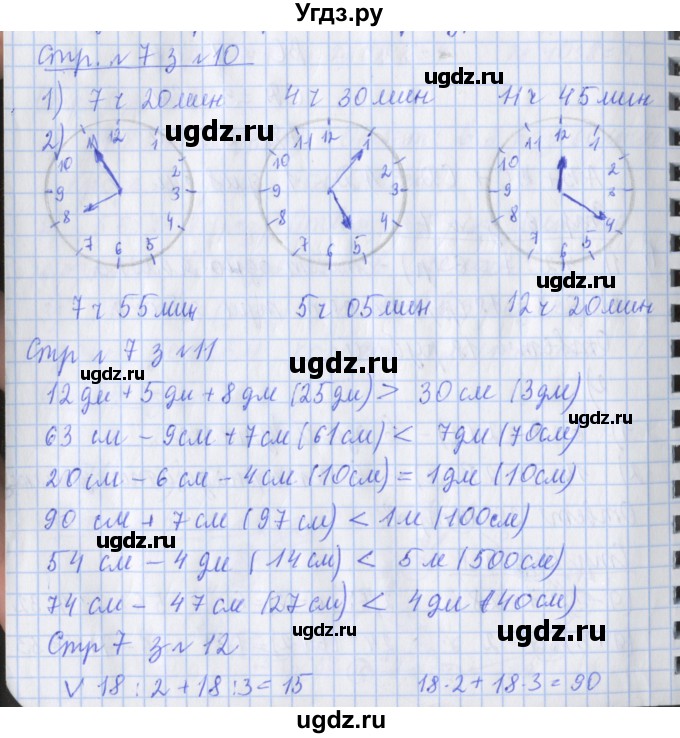 Угдз.ру
Стр. н 7 з н 10
1) 7 ч 20 мин 4 ч 30 мин 11 ч 45 мин
ugdz.ru ugdz.ru
2)
11 12 1 11 12 1 11 12 1
10 2 10 2 10 2
9 3 9 3 9 3
8 4 8 4 8 4
7 6 5 7 6 5 7 6 5
ugdz.ru
7 ч 55 мин 5 ч 05 мин 12 ч 20 мин
Стр н 7 з н 11
ugdz.ru ugdz.ru
12 дм + 5 дм + 8 дм (25 дм) > 30 см (3 дм)
63 см - 9 см + 7 см (61 см) < 7 дм (70 см)
ugdz.ru
20 см - 6 см - 4 см (10 см) = 1 дм (10 см)
90 см + 7 см (97 см) < 1 м (100 см)
ugdz.ru
54 см - 4 дм (14 см) < 5 м (500 см)
74 см - 47 см (27 см) < 4 дм (40 см)
ugdz.ru ugdz.ru
Стр 7 з н 12
V 18 : 2 + 18 : 3 = 15 18 · 2 + 18 · 3 = 90
ugdz.ru